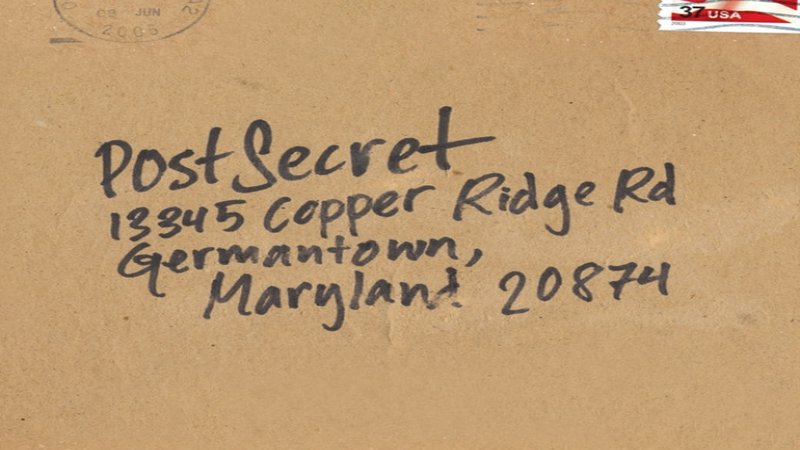 08 JUN
2005
37 USA
PostSecret
13345 Copper Ridge Rd
Germantown,
Maryland 20874